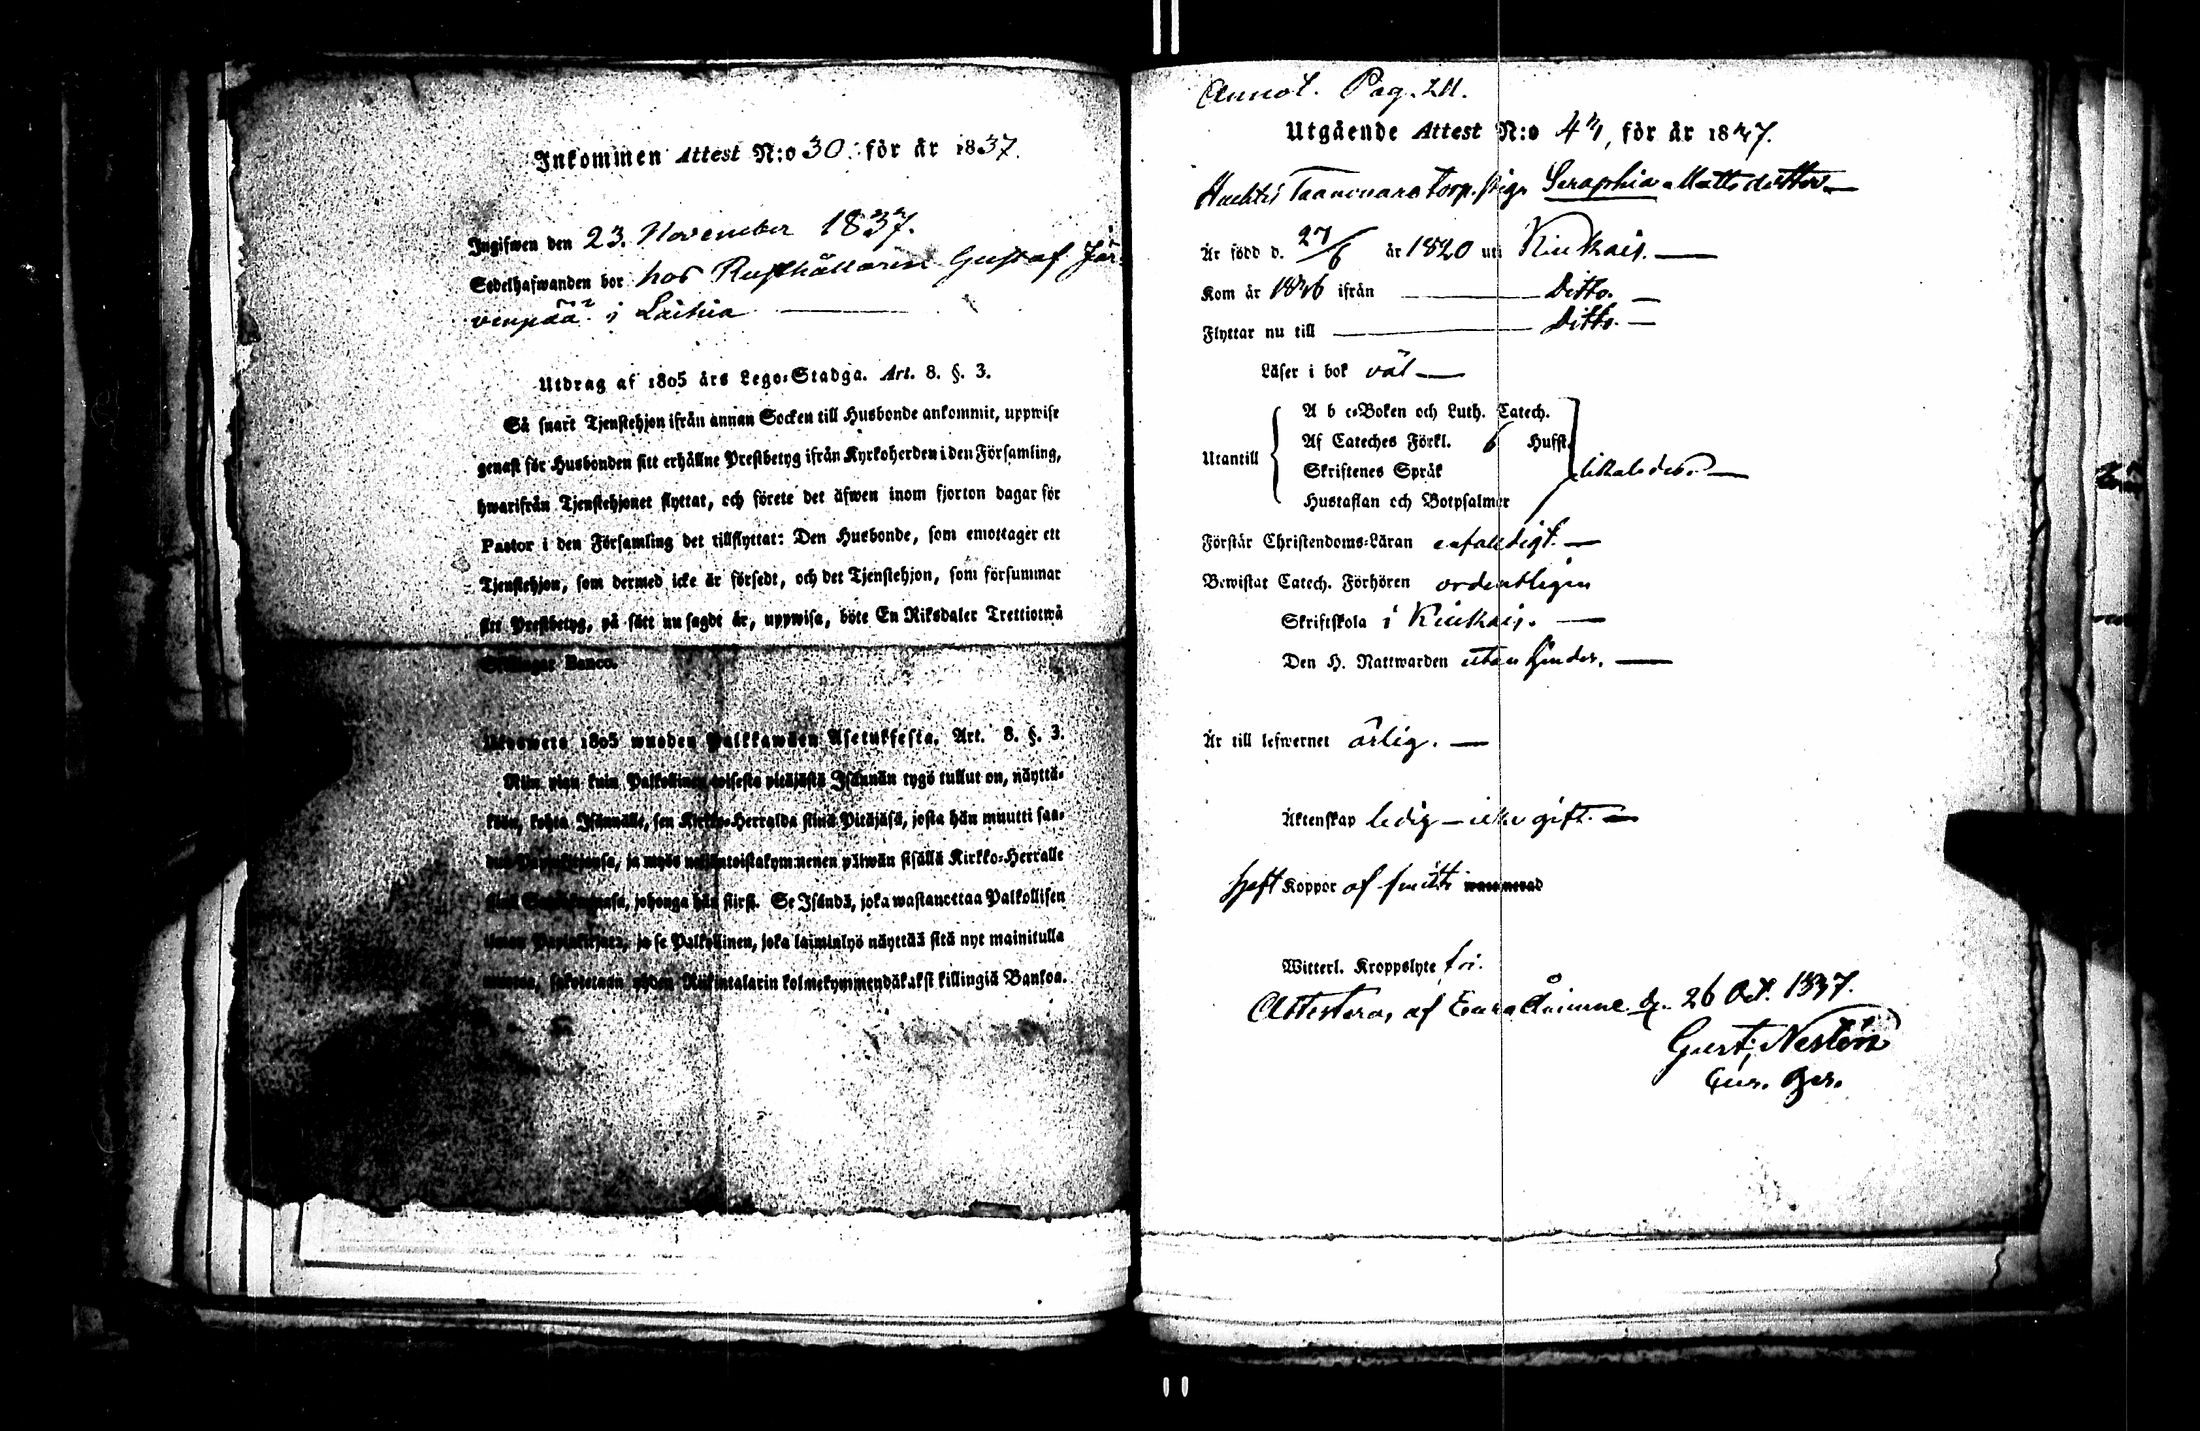 Inkommen Attest N:o 30 för år 1837.
Ingifwen den 23. November 1837.
Sedelhafwanden bor hos Rusthållaren Gustaf Jär-
venpää i Laihia
Utdrag af 1805 års Lego-Stadga. Art. 8. §. 3.
Så snart Tjenstehjon ifrån annan Socken till Husbonde ankommit, uppwise
genast för Husbonden sitt erhållne Prestbetyg ifrån Kyrkoherden i den Församling,
hwarifrån Tjenstehjonet flyttat, och förete det äfwen inom fjorton dagar för
Pastor i den Församling det tillflyttat: Den Husbonde, som emottager ett
Tjenstehjon, som dermed icke är försedt, och det Tjenstehjon, som försummar
sitt Prestbetyg, på sätt nu sagdt är, uppwisa, böte En Riksdaler Trettiotwå
Skillingar Banco.
1805 wuoden Palkkawäen Asetuksesta. Art. 8. §. 3.
Niin pian kuin Palkollinen toisesta pitäjästä Isännän tygö tullut on, näyttä-
kään, kohta Isännälle, sen Kirkko-Herralda siinä Pitäjäsä, josta hän muutti saa-
dun, ja myös neljäntoistakymmenen päiwän sisällä Kirkko-Herralle
siinä, johonga hän siirsi. Se Isändä, joka wastanottaa Palkollisen
ilman, ja se Palkollinen, joka laiminlyö näyttää sitä nyt mainitulla
muotoa, sakotetaan yhden Riikintalarin kolmekymmendäkaksi killingiä Bankoa.
Annot. Pag. 211.
Utgående Attest N:o 43, för år 1837.
Torp. pig. Seraphia Mattsdotter
Är född d. 27/6 år 1820 uti Kiukais.
Kom år 1836 ifrån Ditto.
Flyttar nu till Ditto.
Läser i bok väl
Utantill
A b c-Boken och Luth. Catech.
Af Cateches Förkl. 6 Hufst.
Skriftenes Språk
Hustaflan och Botpsalmer
likaledes.
Förstår Christendoms-Läran enfaldigt.
Bewistat Catech. Förhören ordentligen
Skriftskola i Kiukais.
Den H. Nattwarden utan hinder.
Är till lefwernet ärlig.
Äktenskap ledig - icke gift.
haft Koppor af smitta waccinerad
Witterl. Kroppslyte fri.
Attesterar, af Eura d. 26 Oct. 1837.
Gust. Neston